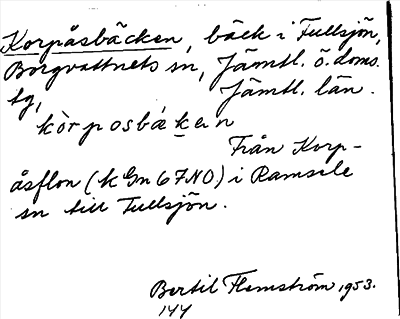 Korpåsbäcken, bäck i Fullsjön,
Borgvattnets sn, Jämtl. ö. doms.
tg, Jämtl. län.
kòrposbäken
Från Korp-
åsflon (k Gm 67NO) i Ramsele
sn till Fullsjön.
Bertil Flemström 1953.
144